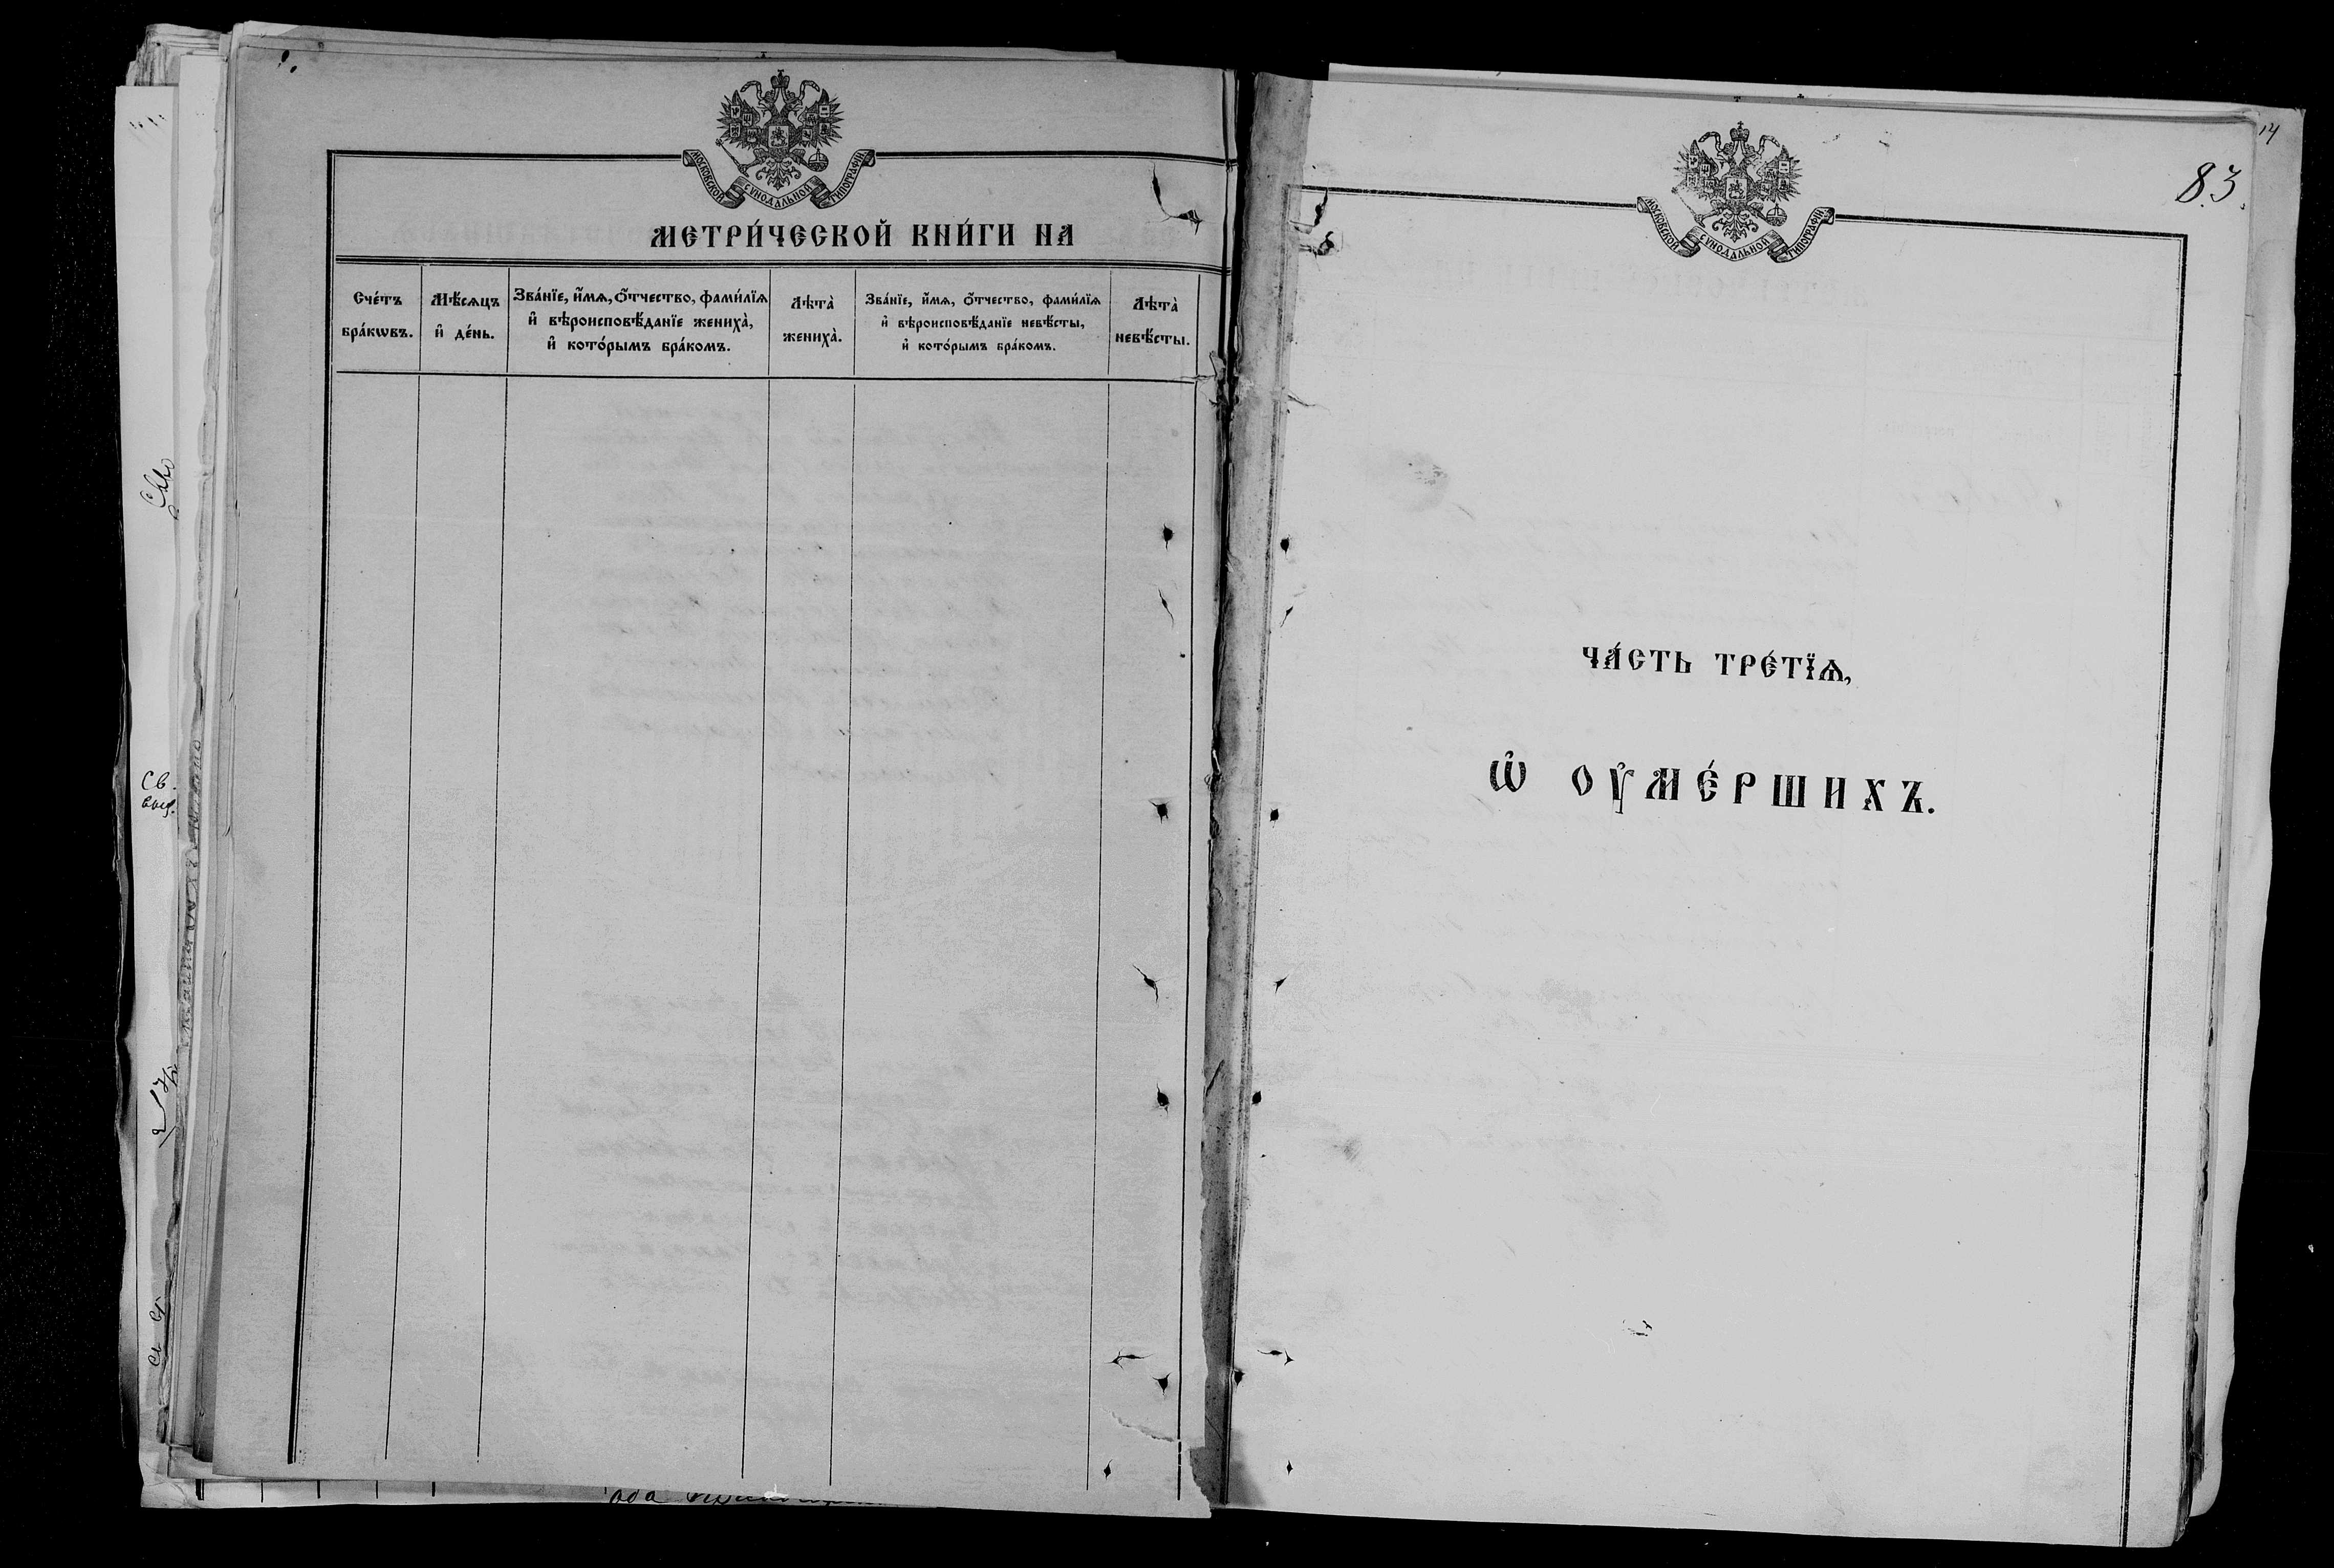 МОСКОВСКОЙ СѴНОДАЛЬНОЙ ТИПОГРАФІИ
МЕТРИ́ЧЕСКОЙ КНИ́ГИ НА
Сче́тъ
бра́кѡвъ.
Мѣ́сѧцъ
и҆ де́нь.
Зва́нїе, и҆́мѧ, ѻ҆́тчество, фами́лїѧ
и҆ вѣроисповѣ́данїе жениха̀,
и҆ кото́рымъ бра́комъ.
Лѣта̀
жениха̀.
Зва́нїе, и҆́мѧ, ѻ҆́тчество, фами́лїѧ
и҆ вѣроисповѣ́данїе невѣ́сты,
и҆ кото́рымъ бра́комъ.
Лѣта̀
невѣ́сты.
Св.
14
83.
МОСКОВСКОЙ СѴНОДАЛЬНОЙ ТИПОГРАФІИ
ЧА́СТЬ ТРЕ́ТЇѦ,
Ѡ҆ ОУ҆МЕ́РШИХЪ.